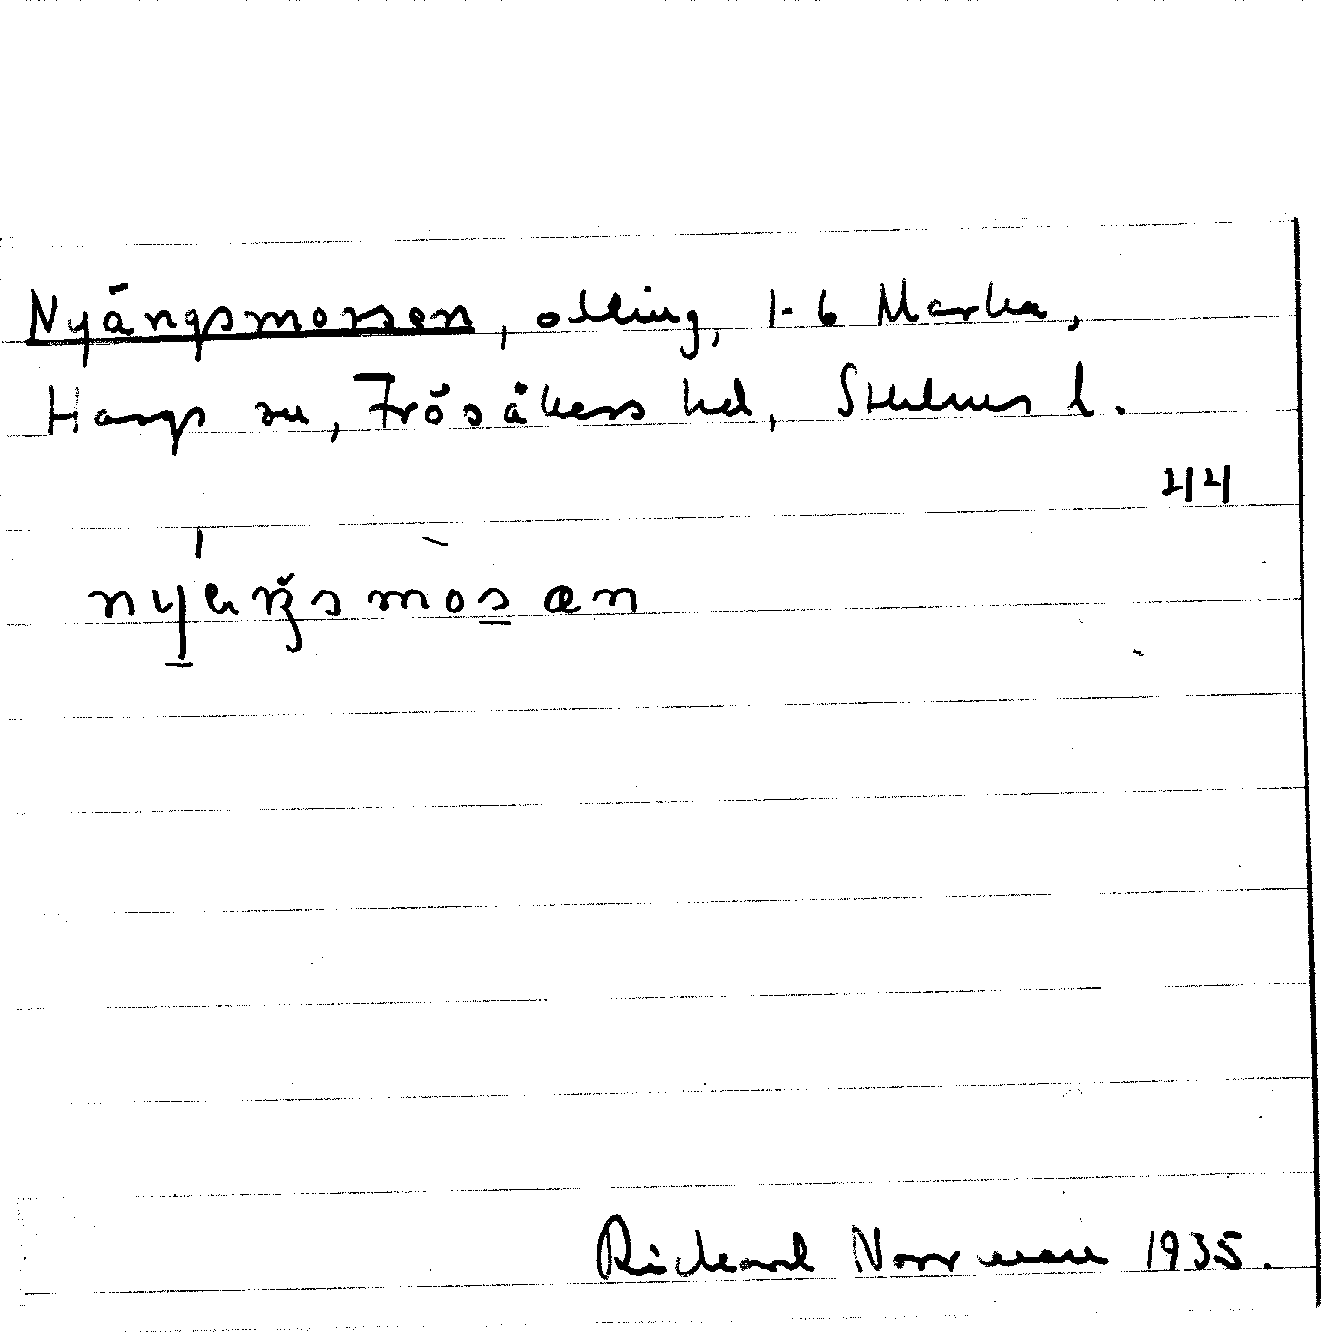 Nyängsmossen, odling, 1-6 Marka,
Hargs sn, Frösåkers hd, Sthlms l.
44
Rickard Norrman 1935.